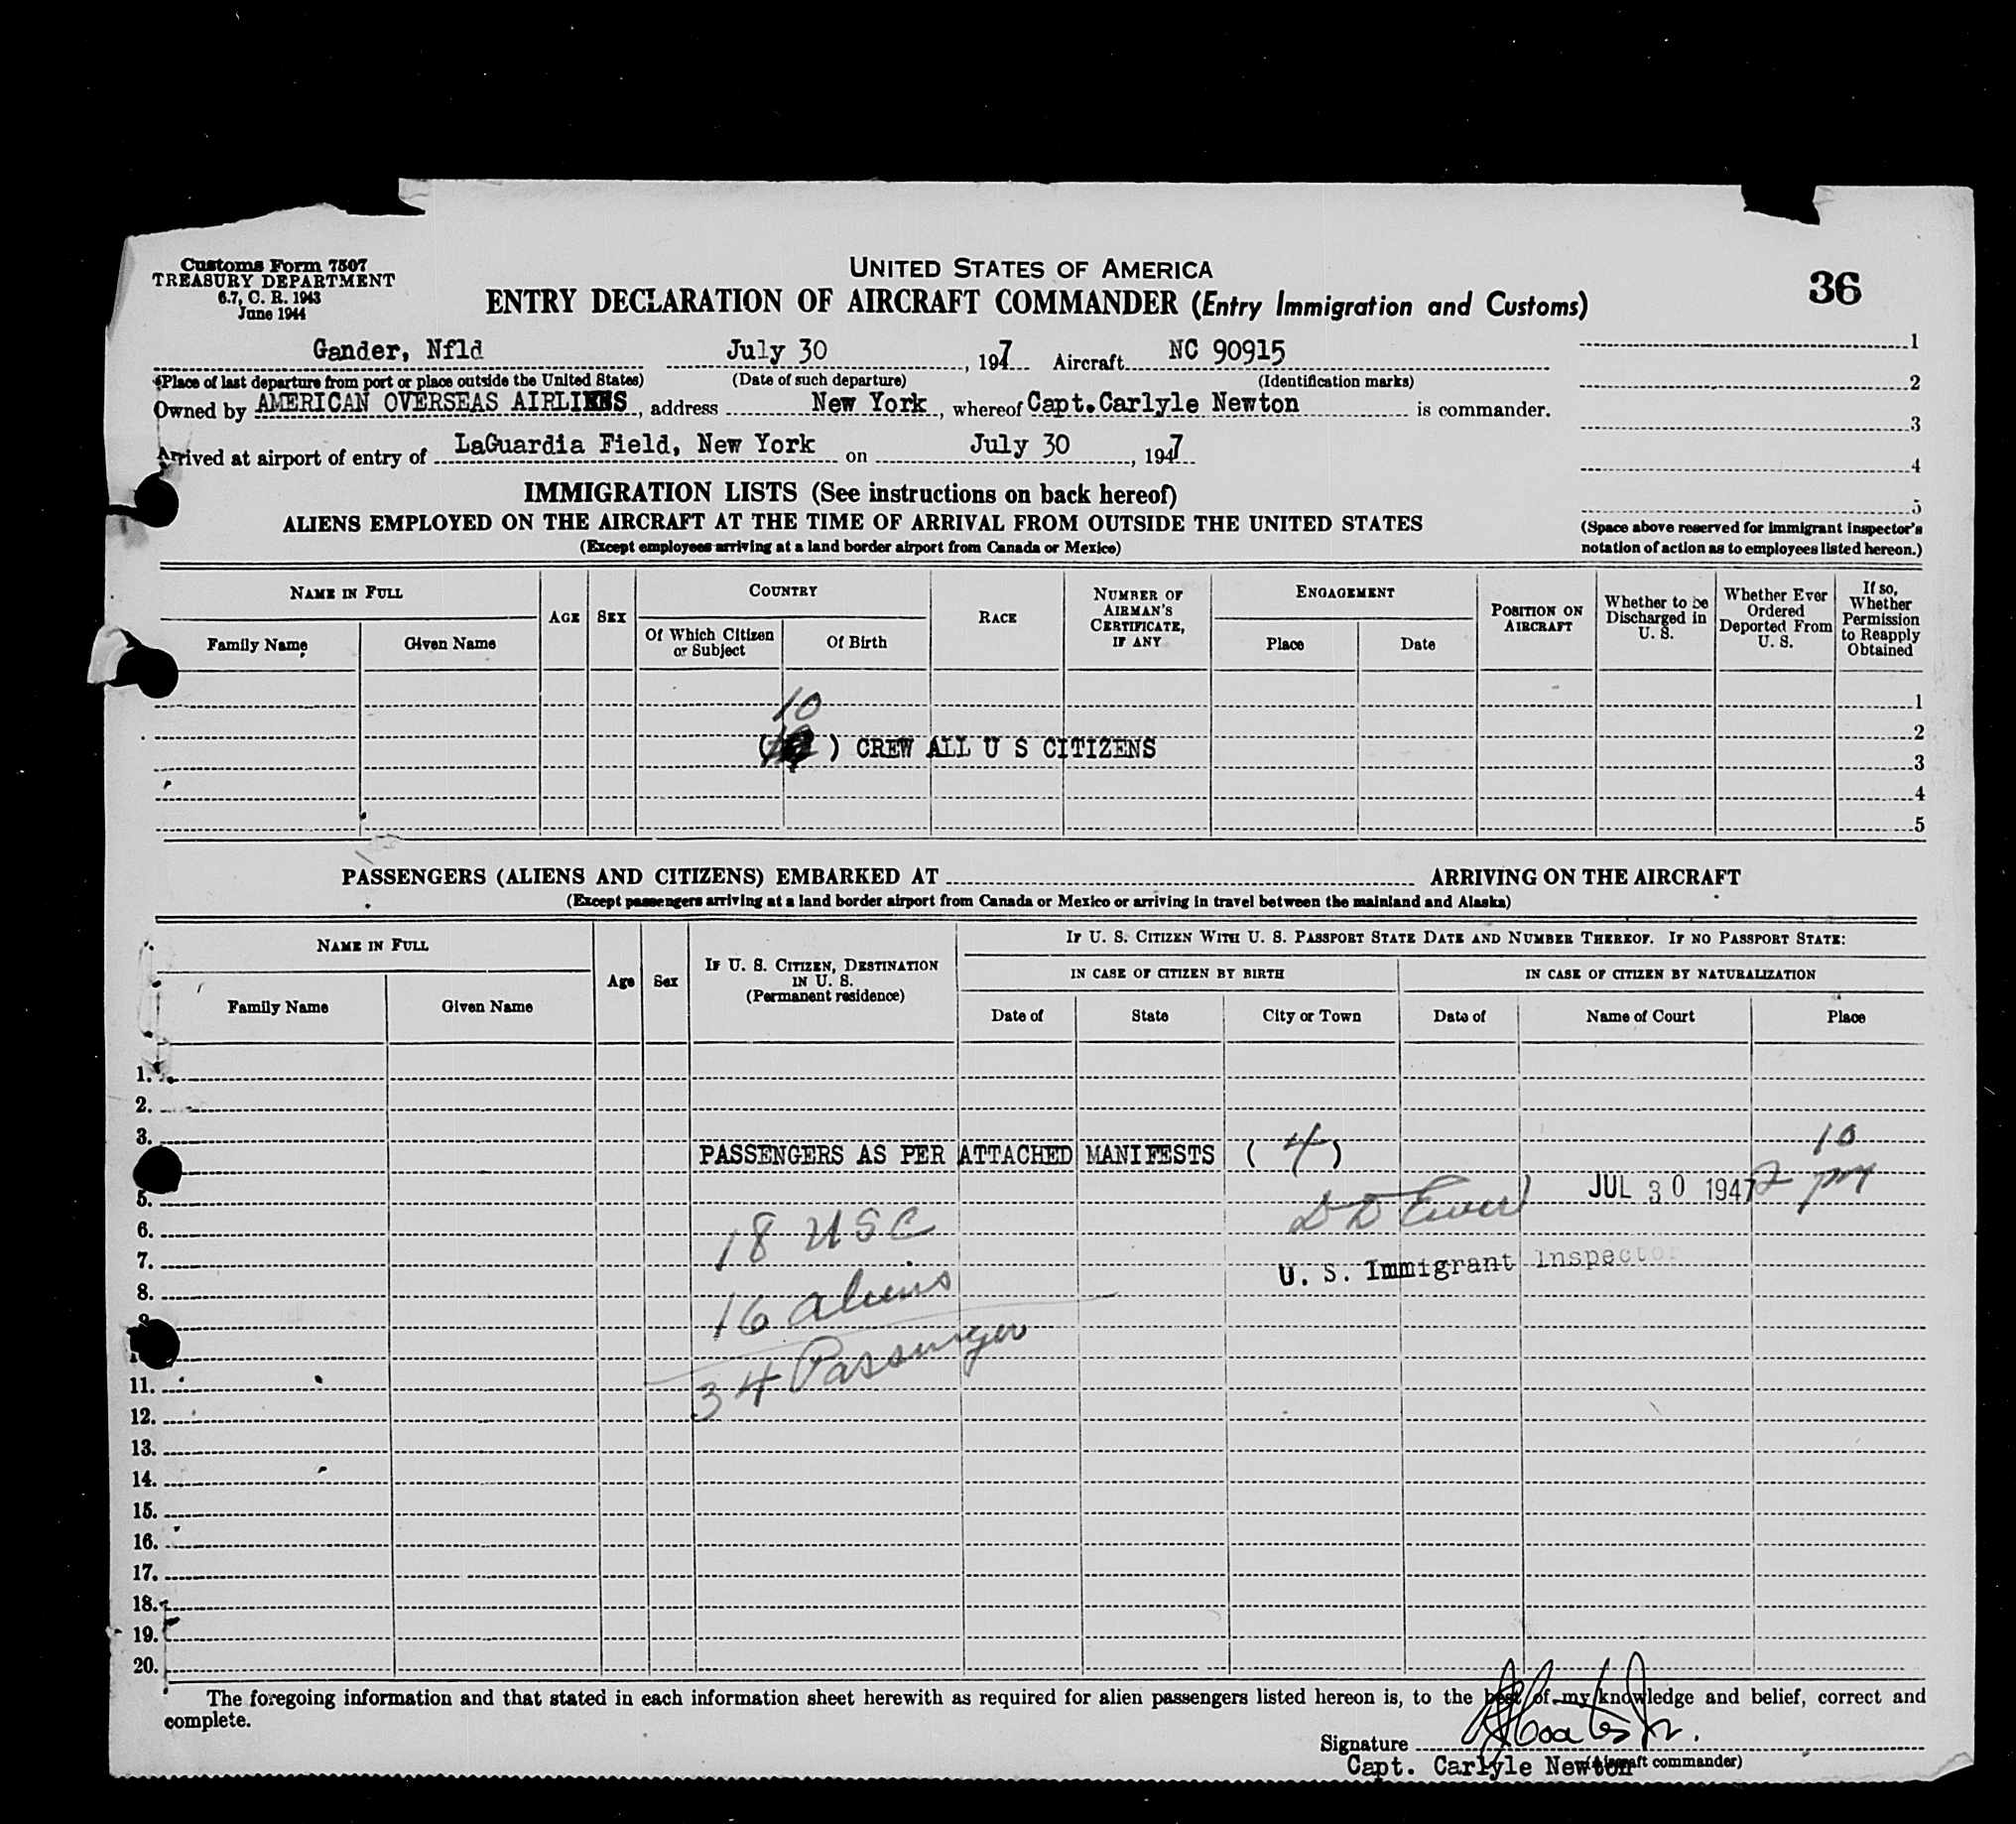 Customs Form 7507
TREASURY DEPARTMENT
6.7, C. R. 1943
June 1944
UNITED STATES OF AMERICA
ENTRY DECLARATION OF AIRCRAFT COMMANDER (Entry Immigration and Customs)
36
Gander, Nfld July 30, 1947 Aircraft NC 90915
(Place of last departure from port or place outside the United States) (Date of such departure) (Identification marks)
Owned by AMERICAN OVERSEAS AIRLINES, address New York, whereof Capt. Carlyle Newton is commander.
Arrived at airport of entry of LaGuardia Field, New York on July 30, 1947
1
2
3
4
5
(Space above reserved for immigrant inspector's
notation of action as to employees listed hereon.)
IMMIGRATION LISTS (See instructions on back hereof)
ALIENS EMPLOYED ON THE AIRCRAFT AT THE TIME OF ARRIVAL FROM OUTSIDE THE UNITED STATES
(Except employees arriving at a land border airport from Canada or Mexico)
NAME IN FULL
Family Name Given Name
AGE
SEX
COUNTRY
Of Which Citizen or Subject
Of Birth
RACE
NUMBER OF AIRMAN'S CERTIFICATE, IF ANY
ENGAGEMENT
Place Date
POSITION ON AIRCRAFT
Whether to be Discharged in U. S.
Whether Ever Ordered Deported From U. S.
If so, Whether Permission to Reapply Obtained
1
10
2
( ) CREW ALL U S CITIZENS
3
4
5
PASSENGERS (ALIENS AND CITIZENS) EMBARKED AT ARRIVING ON THE AIRCRAFT
(Except passengers arriving at a land border airport from Canada or Mexico or arriving in travel between the mainland and Alaska)
NAME IN FULL
Family Name Given Name
Age
Sex
IF U. S. CITIZEN, DESTINATION IN U. S.
(Permanent residence)
IF U. S. CITIZEN WITH U. S. PASSPORT STATE DATE AND NUMBER THEREOF. IF NO PASSPORT STATE:
IN CASE OF CITIZEN BY BIRTH
IN CASE OF CITIZEN BY NATURALIZATION
Date of State City or Town Date of Name of Court Place
1.
2.
3.
PASSENGERS AS PER ATTACHED MANIFESTS (4)
10
5.
JUL 30 1947 2 pm
6.
18 USC
7.
U. S. Immigrant Inspector
8.
16 aliens
34 Passenger
11.
12.
13.
14.
15.
16.
17.
18.
19.
20.
The foregoing information and that stated in each information sheet herewith as required for alien passengers listed hereon is, to the best of my knowledge and belief, correct and
complete.
Signature
Capt. Carlyle Newton
(Aircraft commander)